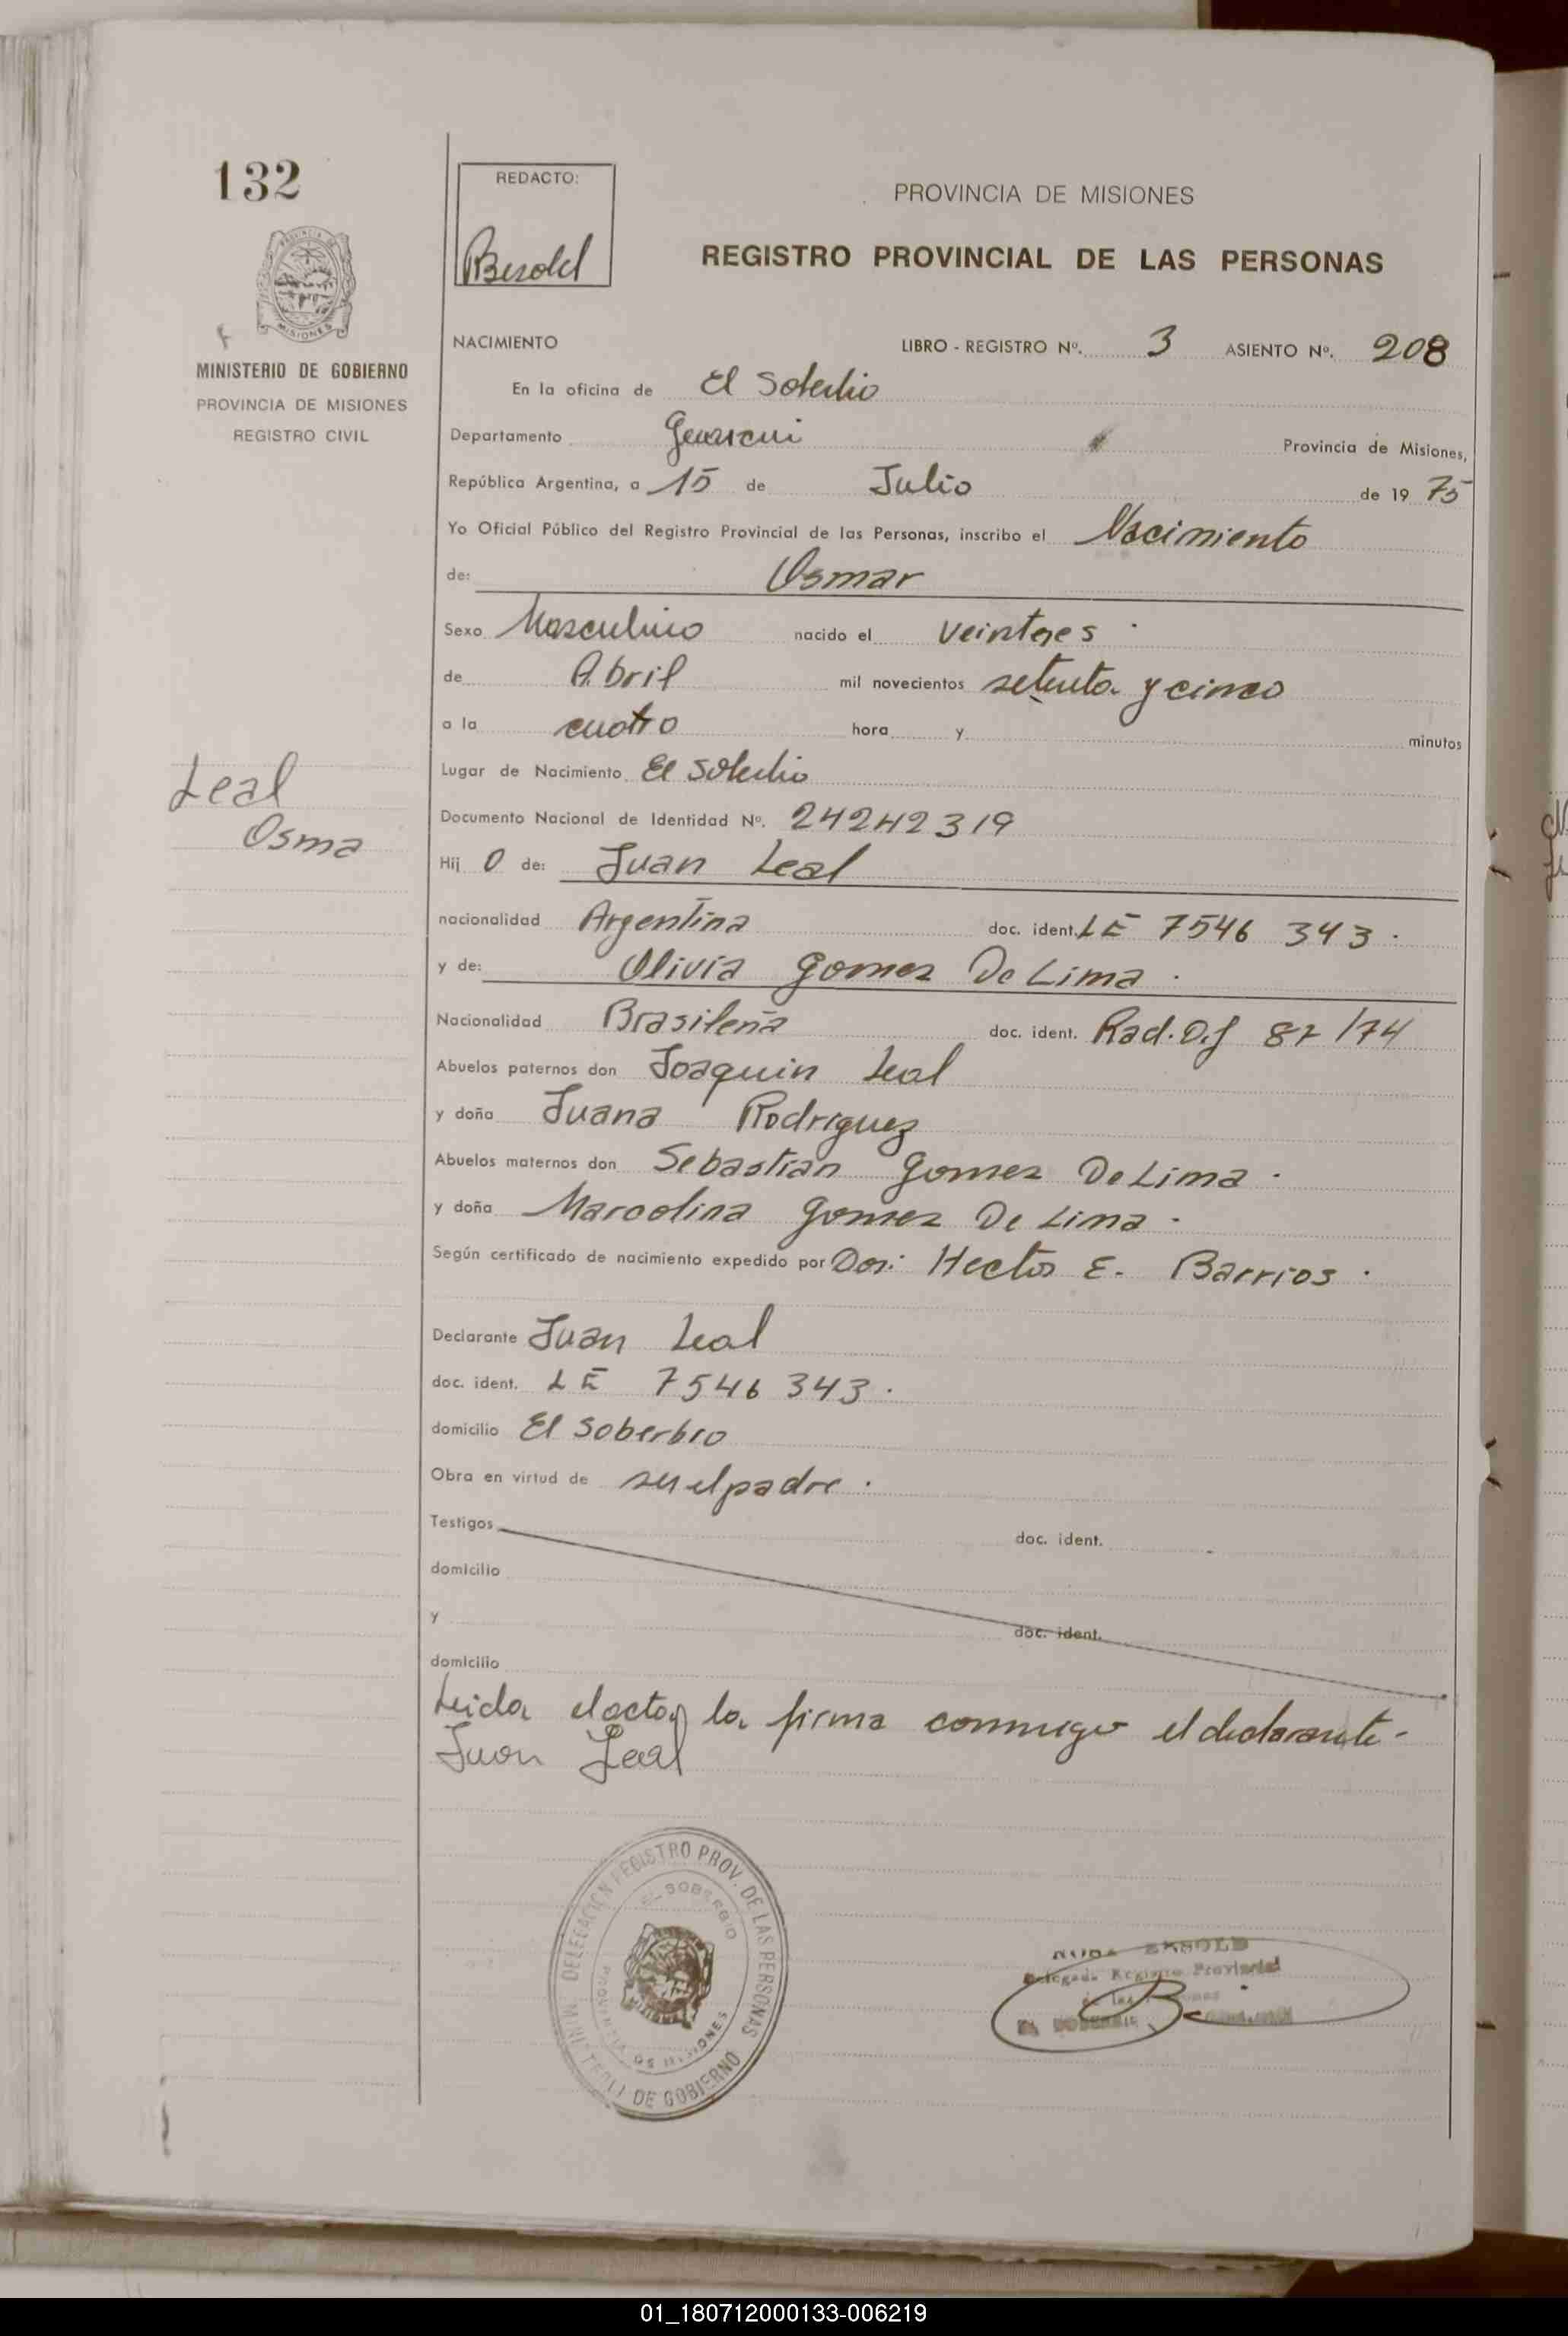 132
REDACTO:
Besold
PROVINCIA DE MISIONES
REGISTRO PROVINCIAL DE LAS PERSONAS
MISIONES
MINISTERIO DE GOBIERNO
PROVINCIA DE MISIONES
REGISTRO CIVIL
NACIMIENTO LIBRO - REGISTRO Nº. 3 ASIENTO Nº. 208
En la oficina de El Soberbio
Departamento Guarani Provincia de Misiones,
República Argentina, a 15 de Julio de 19 75
Yo Oficial Público del Registro Provincial de las Personas, inscribo el Nacimiento
de: Osmar
Sexo Masculino nacido el veintres
de Abril mil novecientos setenta y cinco
a la cuatro hora y minutos
Lugar de Nacimiento El Soberbio
Leal
Osma
Documento Nacional de Identidad Nº. 24242319
Hij o de: Juan Leal
nacionalidad Argentina doc. ident. LE 7546 343.
y de: Olivia Gomez De Lima.
Nacionalidad Brasileña doc. ident. Rad. 87/74
Abuelos paternos don Joaquin Leal
y doña Juana Rodriguez
Abuelos maternos don Sebastian Gomez De Lima.
y doña Marcolina Gomez De Lima.
Según certificado de nacimiento expedido por Hector E. Barrios.
Declarante Juan Leal
doc. ident. LE 7546 343.
domicilio El Soberbio
Obra en virtud de ser el padre.
Testigos doc. ident.
domicilio
y doc. ident.
domicilio
Leida el acta, la firma conmigo el declarante-
Juan Leal
DELEGACION REGISTRO PROV. DE LAS PERSONAS
EL SOBERBIO
PROVINCIA DE MISIONES
MINISTERIO DE GOBIERNO
BESOLD
Delegada Registro Provincial
de las Personas
EL SOBERBIO
01_180712000133-006219